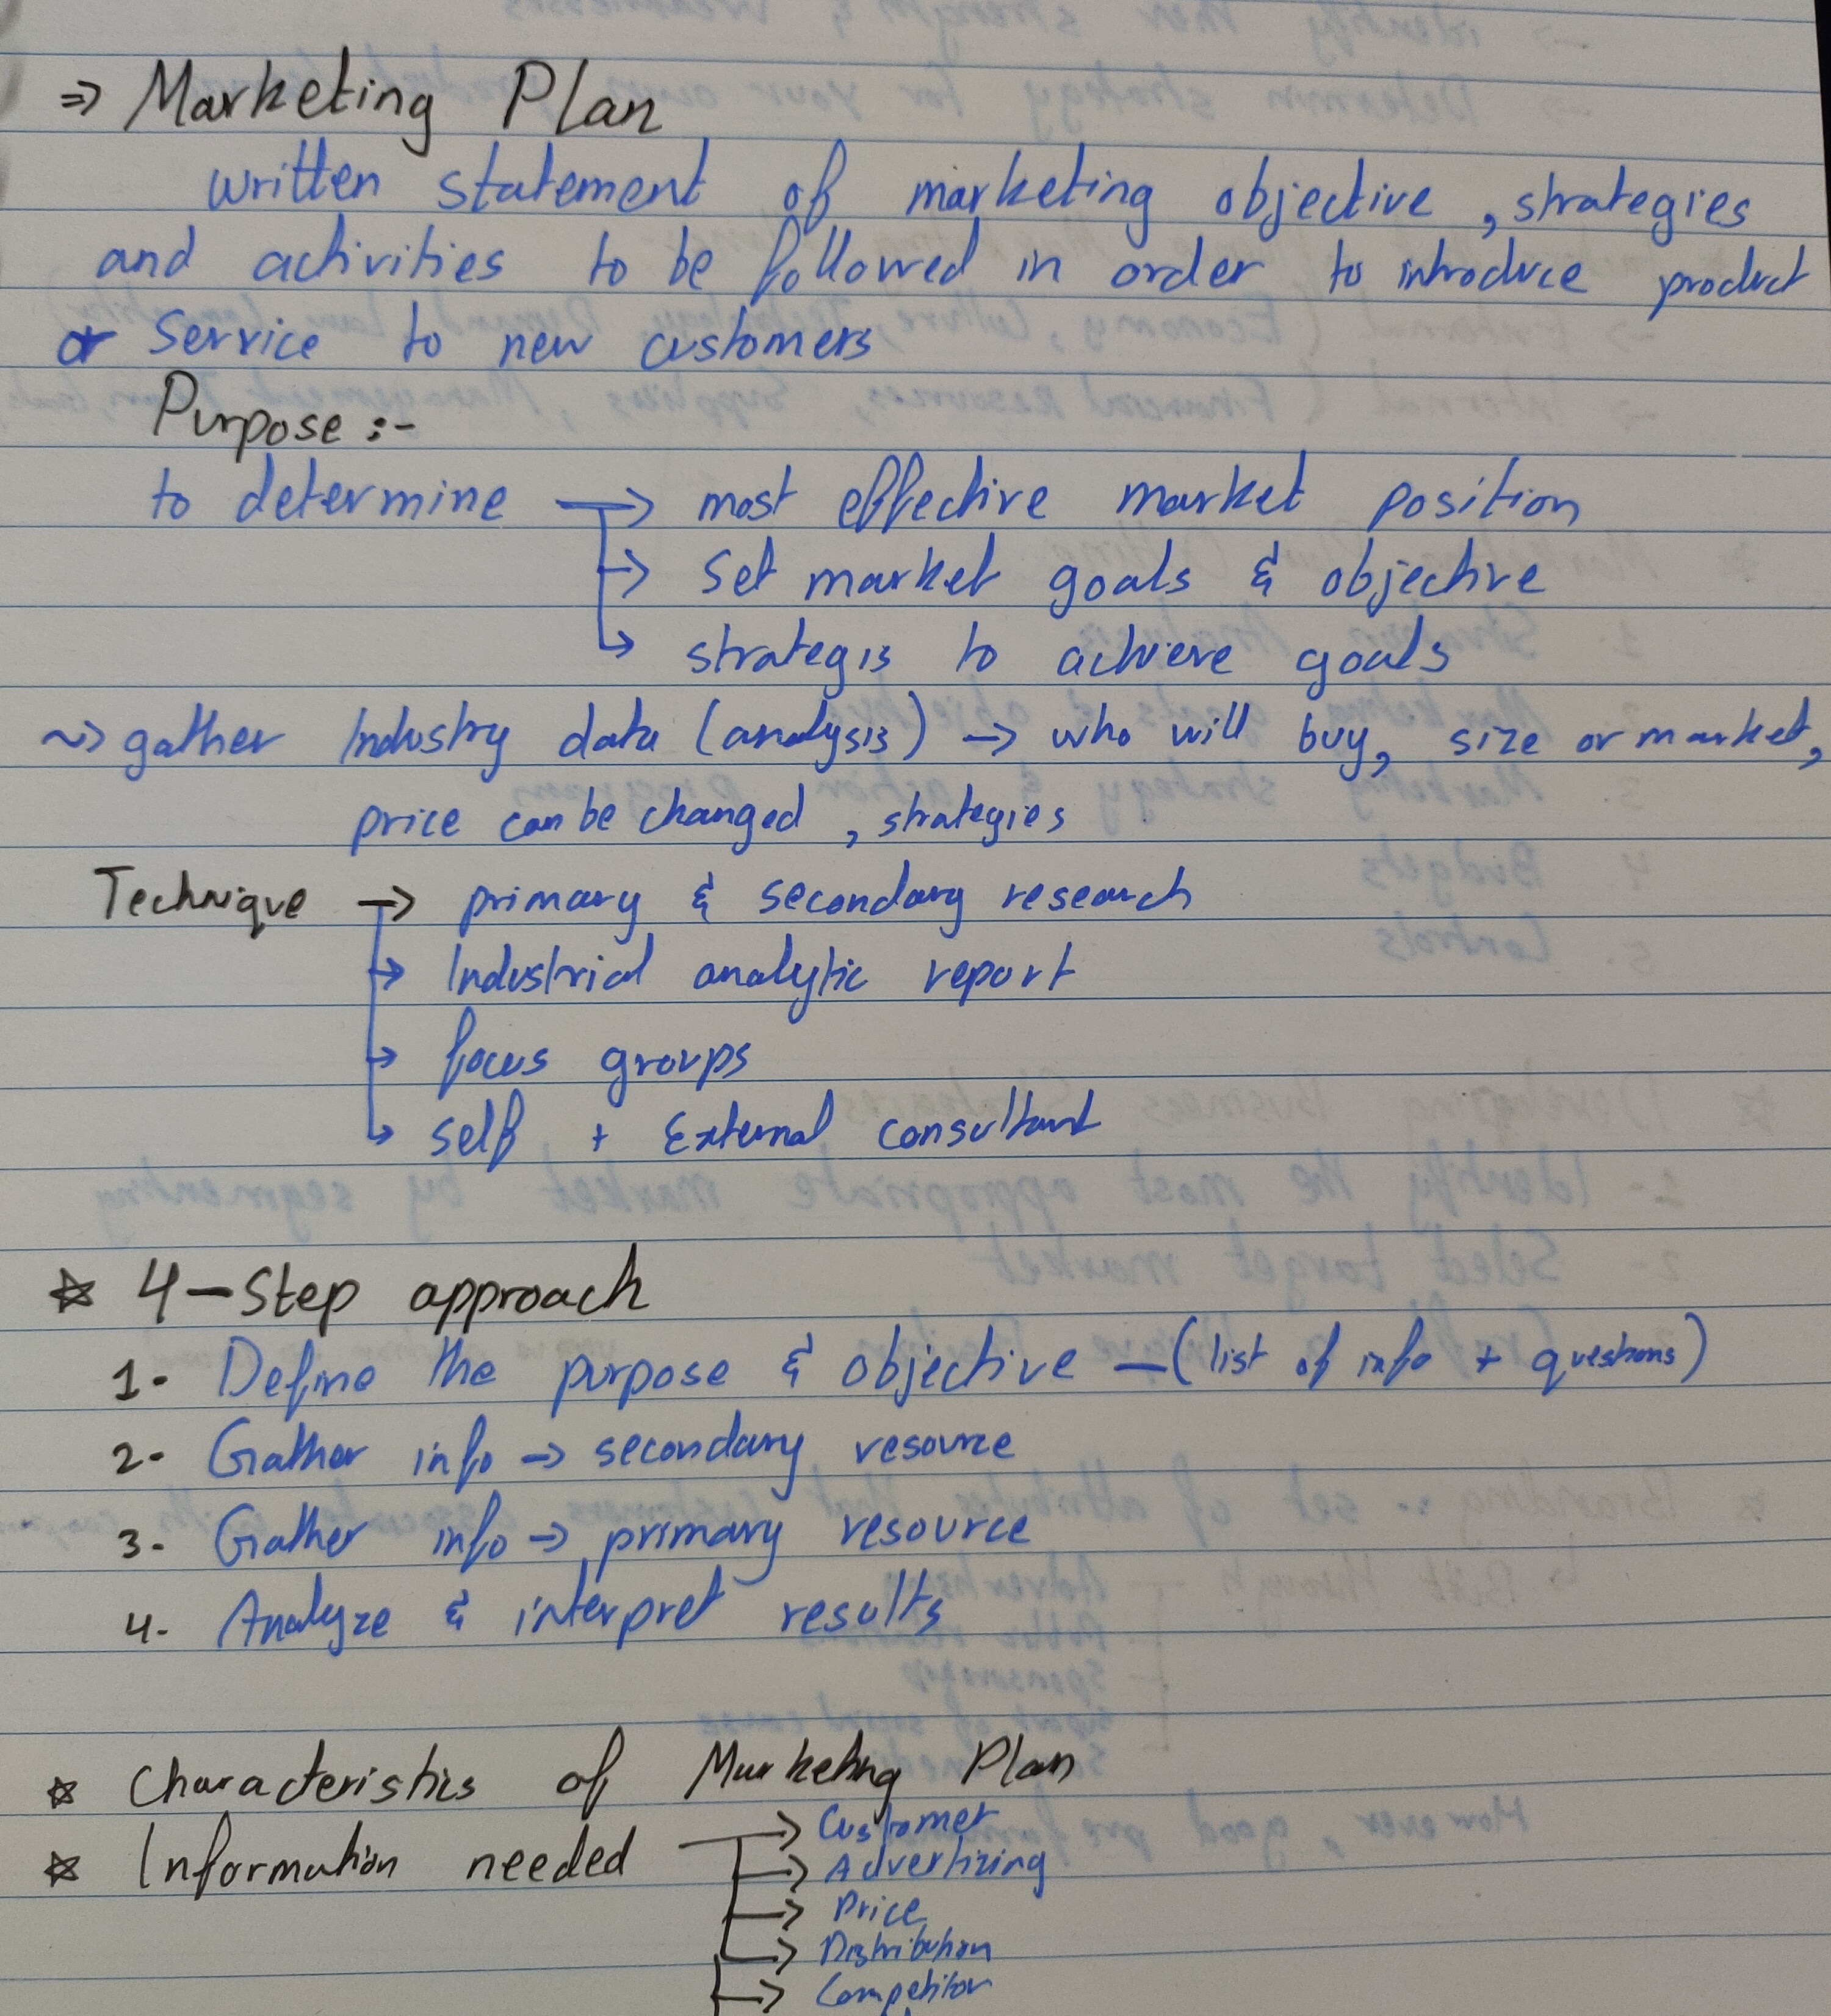 ⇒ Marketing Plan
written statement of marketing objective, strategies
and activities to be followed in order to introduce product
or service to new customers
Purpose :-
to determine → most effective market position
→ set market goals & objective
↳ strategis to achieve goals
~> gather Industry data (analysis) → who will buy, size or market,
price can be changed, strategies
Technique → primary & secondary research
→ Industrial analytic report
→ focus groups
↳ self + External consultant
☆ 4-Step approach
1- Define the purpose & objective — (list of info + questions)
2- Gather info → secondary resource
3- Gather info → primary resource
4- Analyze & interpret results
☆ Characteristics of Marketing Plan
☆ Information needed → Customer
→ Advertizing
→ Price
→ Distribution
→ Competitor